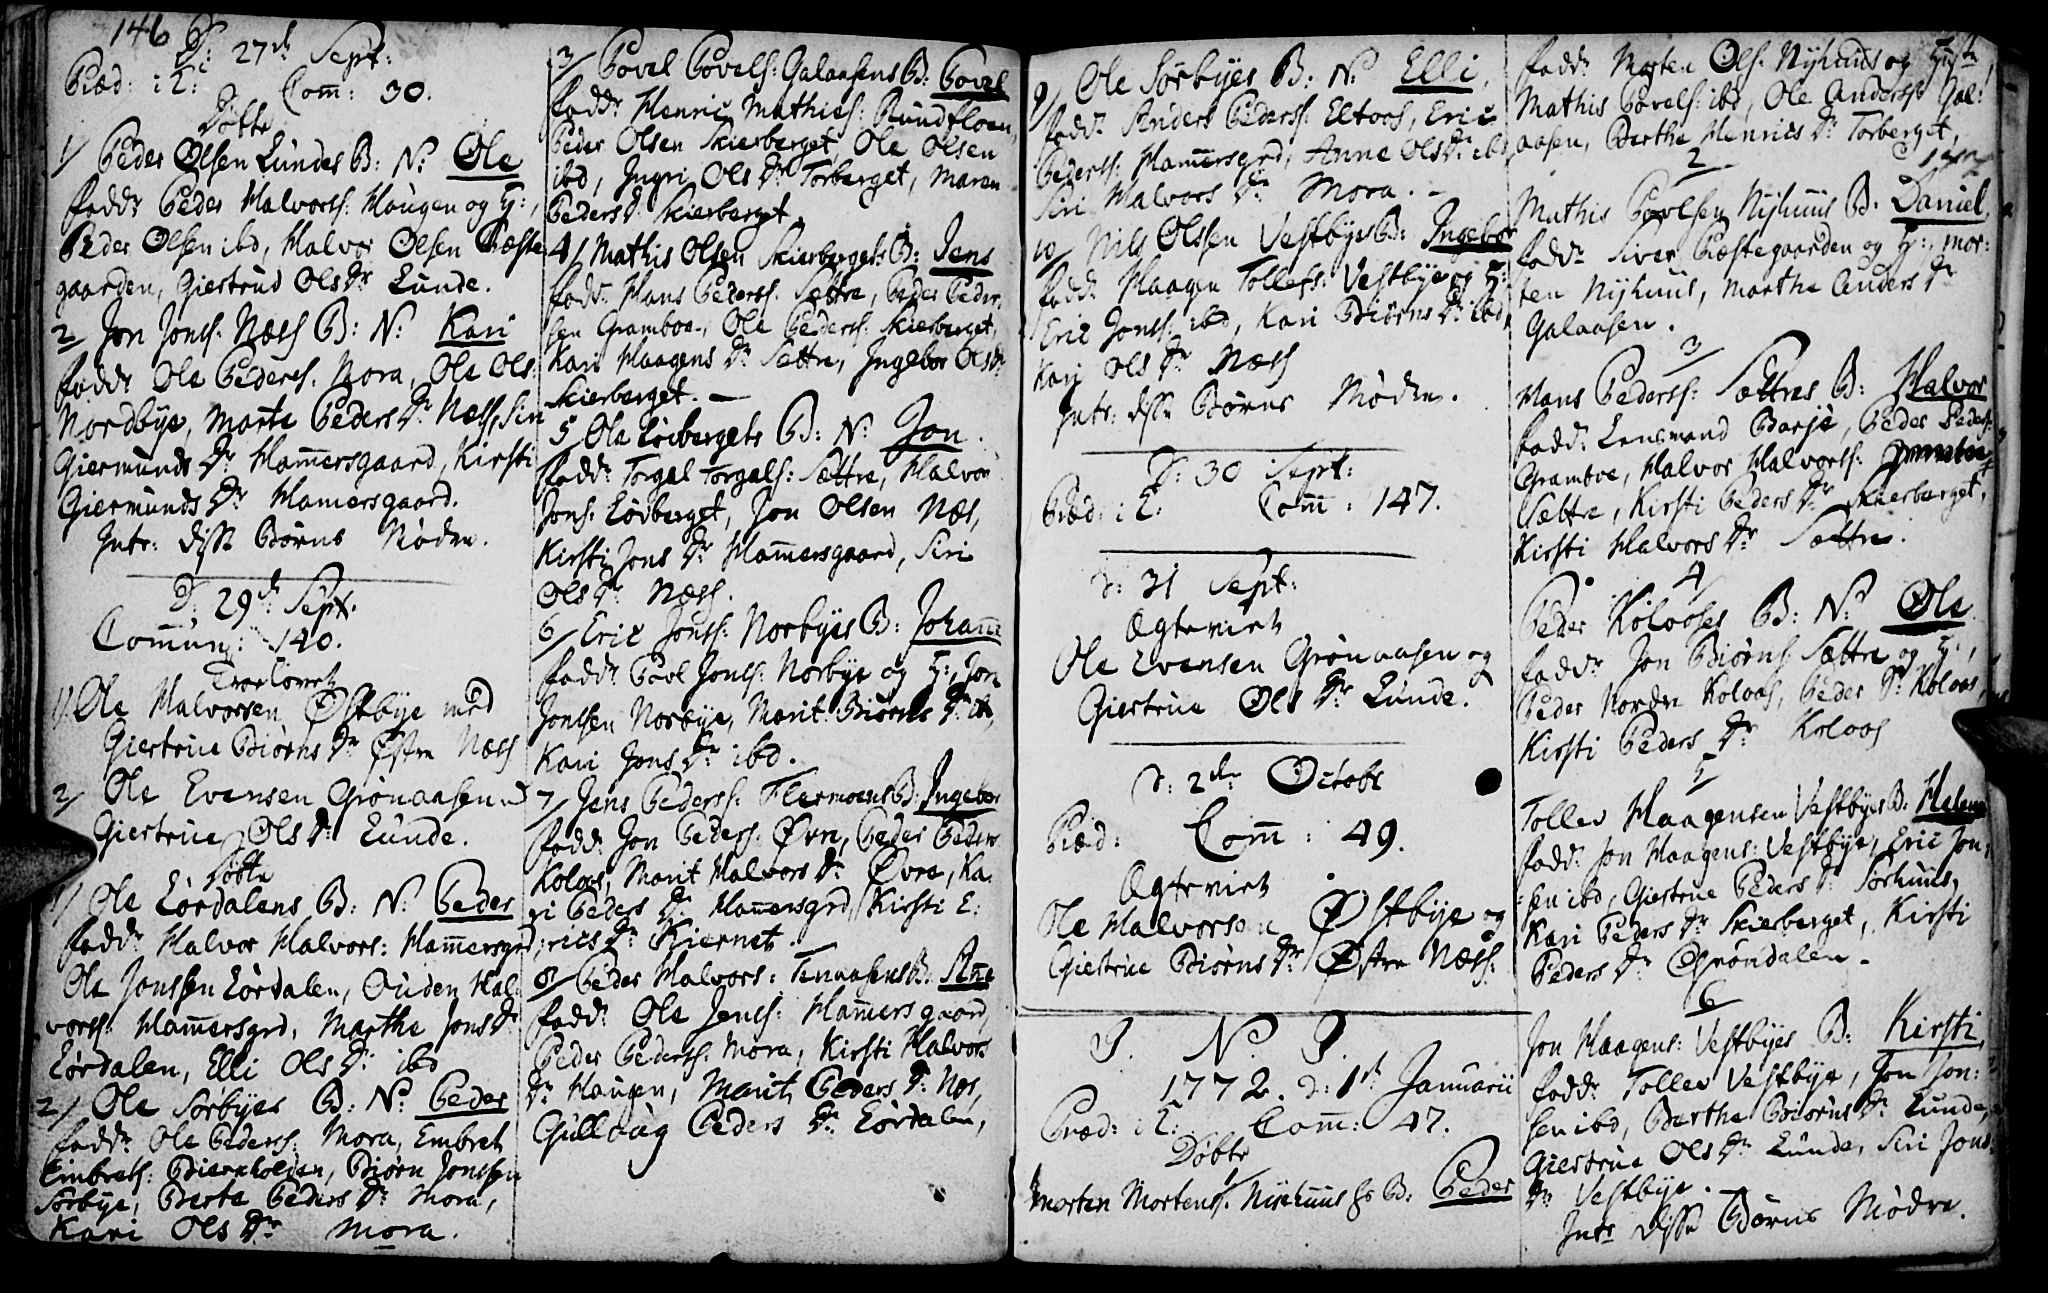 146
D: 27de Sept:
Præd: i E: Com̄: 30.
Döbte
1/ Peder Olsen Lundes B: N: Ole
fadd: Peder Halvorss: Haugen og H:,
Peder Olsen ibd, Halvor Olsen Præste
gaarden, Giertrud Ols Dr Lunde.
2 Jon Jonss: Næss B: N: Kari
fadd: Ole Pederss: Mora, Ole Ols:
Nordbye, Marte Peders Dr Næss, Siri
Giermunds Dr Ham̄ersgaard, Kirsti
Giermunds Dr Ham̄ersgaard.
Intr: disse Börns Mödre.
D: 29de Sept.
Com̄un: 140.
Troelovet
1/ Ole Halvorsen Østbye med
Giertrue Biörns Dr Østre Næss
2/ Ole Evensen Grönaasen
Giertrue Ols Dr Lunde.
Döbte
1/ Ole Lördalens B: N: Peder
fadd: Halvor Halvors: Ham̄ersgrd,
Ole Jonssen Lördalen, Ouden Hal-
vorss: Ham̄ersgrd, Marthe Jons Dr
Lördalen, Elli Ols Dr ibd
2/ Ole Sörbyes B: N: Peder
fadd: Ole Pederss: Mora, Embret
Embretss: Bierkholden, Biörn Jonssen
Sörbye, Berte Peders Dr Mora,
Kari Ols Dr Mora.
3/ Povel Povels: Galaasens B: Povel
fadd: Henric Mathies: Rundfloen,
Peder Olsen Skierberget, Ole Olsen
ibd, Ingri Ols Dr Torberget, Maren
Peders Dr Skierberget.
4/ Mathis Olsen Skierbergets B: Jens
fadd: Hans Pederss: Sættre, Peder Peder-
sen Gramboe, Ole Pederss: Skierberget,
Kari Haagens Dr Sættre, Ingebor Ols Dr
Skierberget.
5 Ole Löbergets B: N: Jon.
fadd: Torgal Torgals: Sættre, Halvor
Jons: Lödberget, Jon Olsen Næs,
Kirsti Jons Dr Ham̄ersgaard, Siri
Ols Dr Næss.
6/ Eric Jonss: Norbyes B: Johan̄e
fadd: Povl Jonss: Norbye og H:, Jon
Jonssen Norbye, Marit Biörns Dr ib,
Kari Jons Dr ibd.
7/ Jens Pederss: Flermoens B: Ingebor
fadd: Jon Peders: Øvre, Peder Peders
Koloos, Marit Halvors Dr Øvre, Ka-
ri Peders Dr Ham̄ersgrd, Kirsti E:
rics Dr Kiernet.
8/ Peder Halvors: Tenaasens B: An̄e
fadd: Ole Jenss: Ham̄ersgaard,
Peder Pederss: Mora, Kirsti Halvors
Dr Haugen, Marit Peders Dr Næs,
Gulloug Peders Dr Lördalen,
9/ Ole Sörbyes B: N: Elli,
fadd: Anders Pederss: Eltoos, Eric
Pederss: Ham̄ersgrd, Anne Ols Dr ibd,
Siri Halvors Dr Mora.
10/ Nils Olssen Vestbyes B: Ingebor
fadd: Haagen Tollefs: Vestbye og H:
Eric Jonss: ibd, Kari Biörns Dr ibd,
Kari Ols Dr Næss
Intr: disse Börns Mödre.
D: 30 Sept:
Præd: i E: Com̄: 147.
D: 31 Sept:
Ægteviet
Ole Evensen Grönaasen og
Giertrue Ols Dr Lunde.
D: 2de Octobr
Præd: Com̄: 49.
Ægteviet
Ole Halvorsen Østbye og
Giertrue Biörns Dr Østre Næss:
I. N. J.
1772. d: 1st Januarii
Præd: i E: Com̄: 47.
Döbte
1
Morten Mortens: Nyehuus hs B: Peder
fadd: Morten Ols: Nyhuus og Hust,
Mathis Povels: ibd, Ole Anderss: Gal-
aasen, Berthe Henrics Dr Torberget,
2
Mathis Povlsen Nyhuus B: Daniel
fadd: Siver Præstegaarden og H:, Mor-
ten Nyhuus, Marthe Anders Dr
Galaasen.
3
Hans Pederss: Sættres B: Halvor
fadd: Lensmand Borje, Peder Peders:
Gramboe, Halvor Halvorss:
Sættre, Kirsti Peders Dr Skierberget,
Kirsti Halvors Dr Sættre.
4
Peder Kolooses B: N: Ole.
fadd: Jon Biörns: Sættre og H:,
Peder Nordre Koloos, Peder Dr Koloos,
Kirsti Peders Dr Koloos
5
Tollev Haagensen Vestbyes B: Helene
fadd: Jon Haagens: Vestbye, Eric Jon-
sen ibd, Giertrue Peders Dr Sörhuus,
Kari Peders Dr Skierberget, Kirsti
Peders Dr Gröndalen.
6
Jon Haagens: Vestbyes B: Kirsti,
fadd: Tollev Vestbye, Jon Jon-
sen ibd, Berthe Biörns Dr Lunde,
Giertrue Ols Dr Lunde, Siri Jons
Dr Vestbye.
Intr disse Börns Mödre.